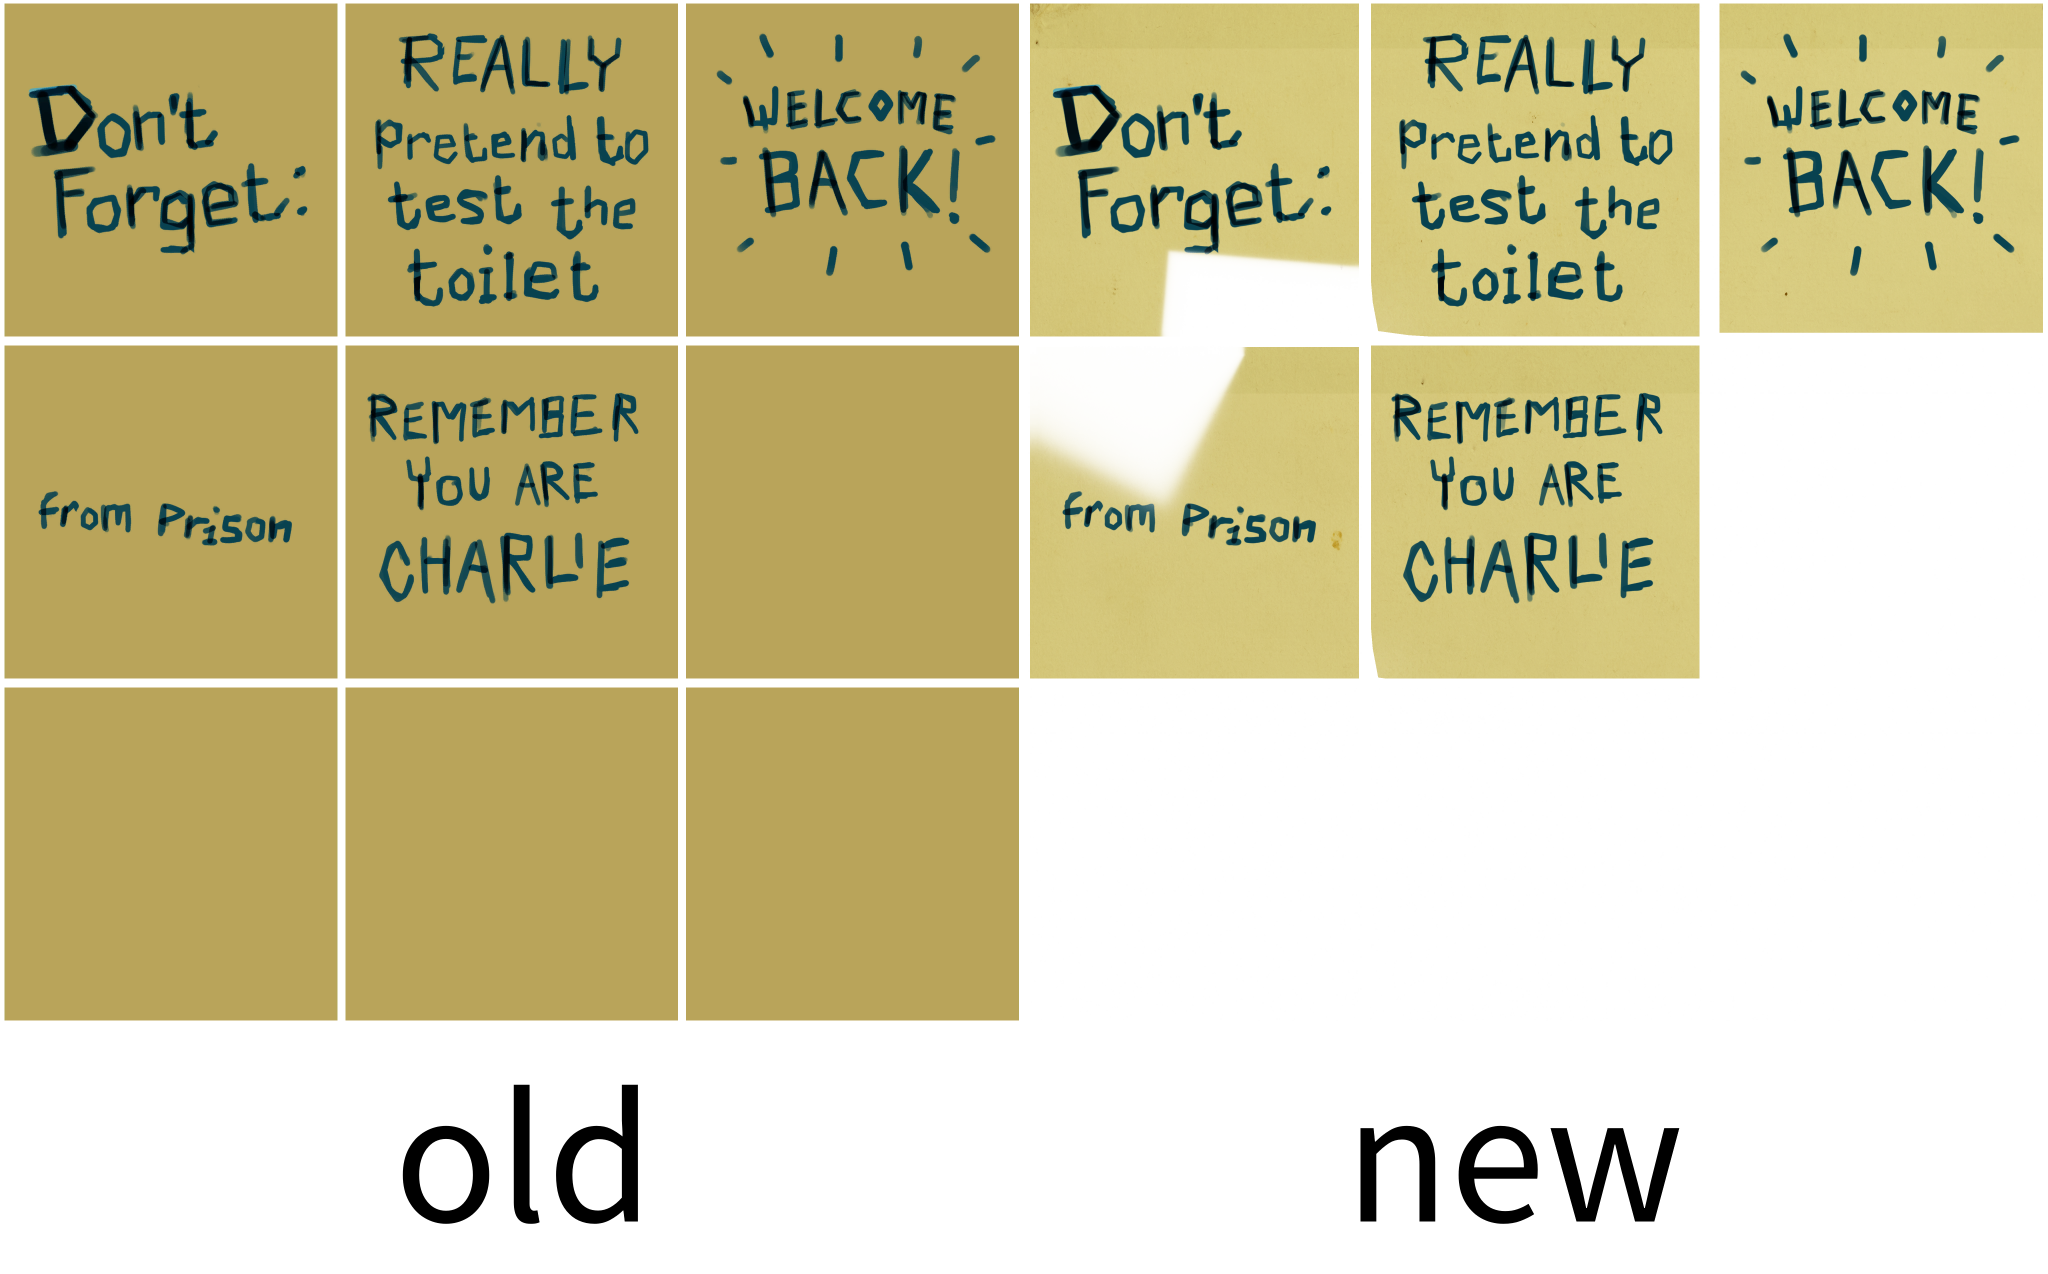 Don't
Forget:
REALLY
Pretend to
test the
toilet
WELCOME
BACK!
from Prison
REMEMBER
YOU ARE
CHARLIE
Don't
Forget:
REALLY
Pretend to
test the
toilet
WELCOME
BACK!
from Prison
REMEMBER
YOU ARE
CHARLIE
old
new